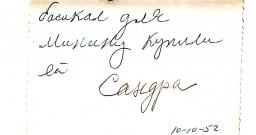 басикал для
Минину купили
ей
Сандра
10-10-52